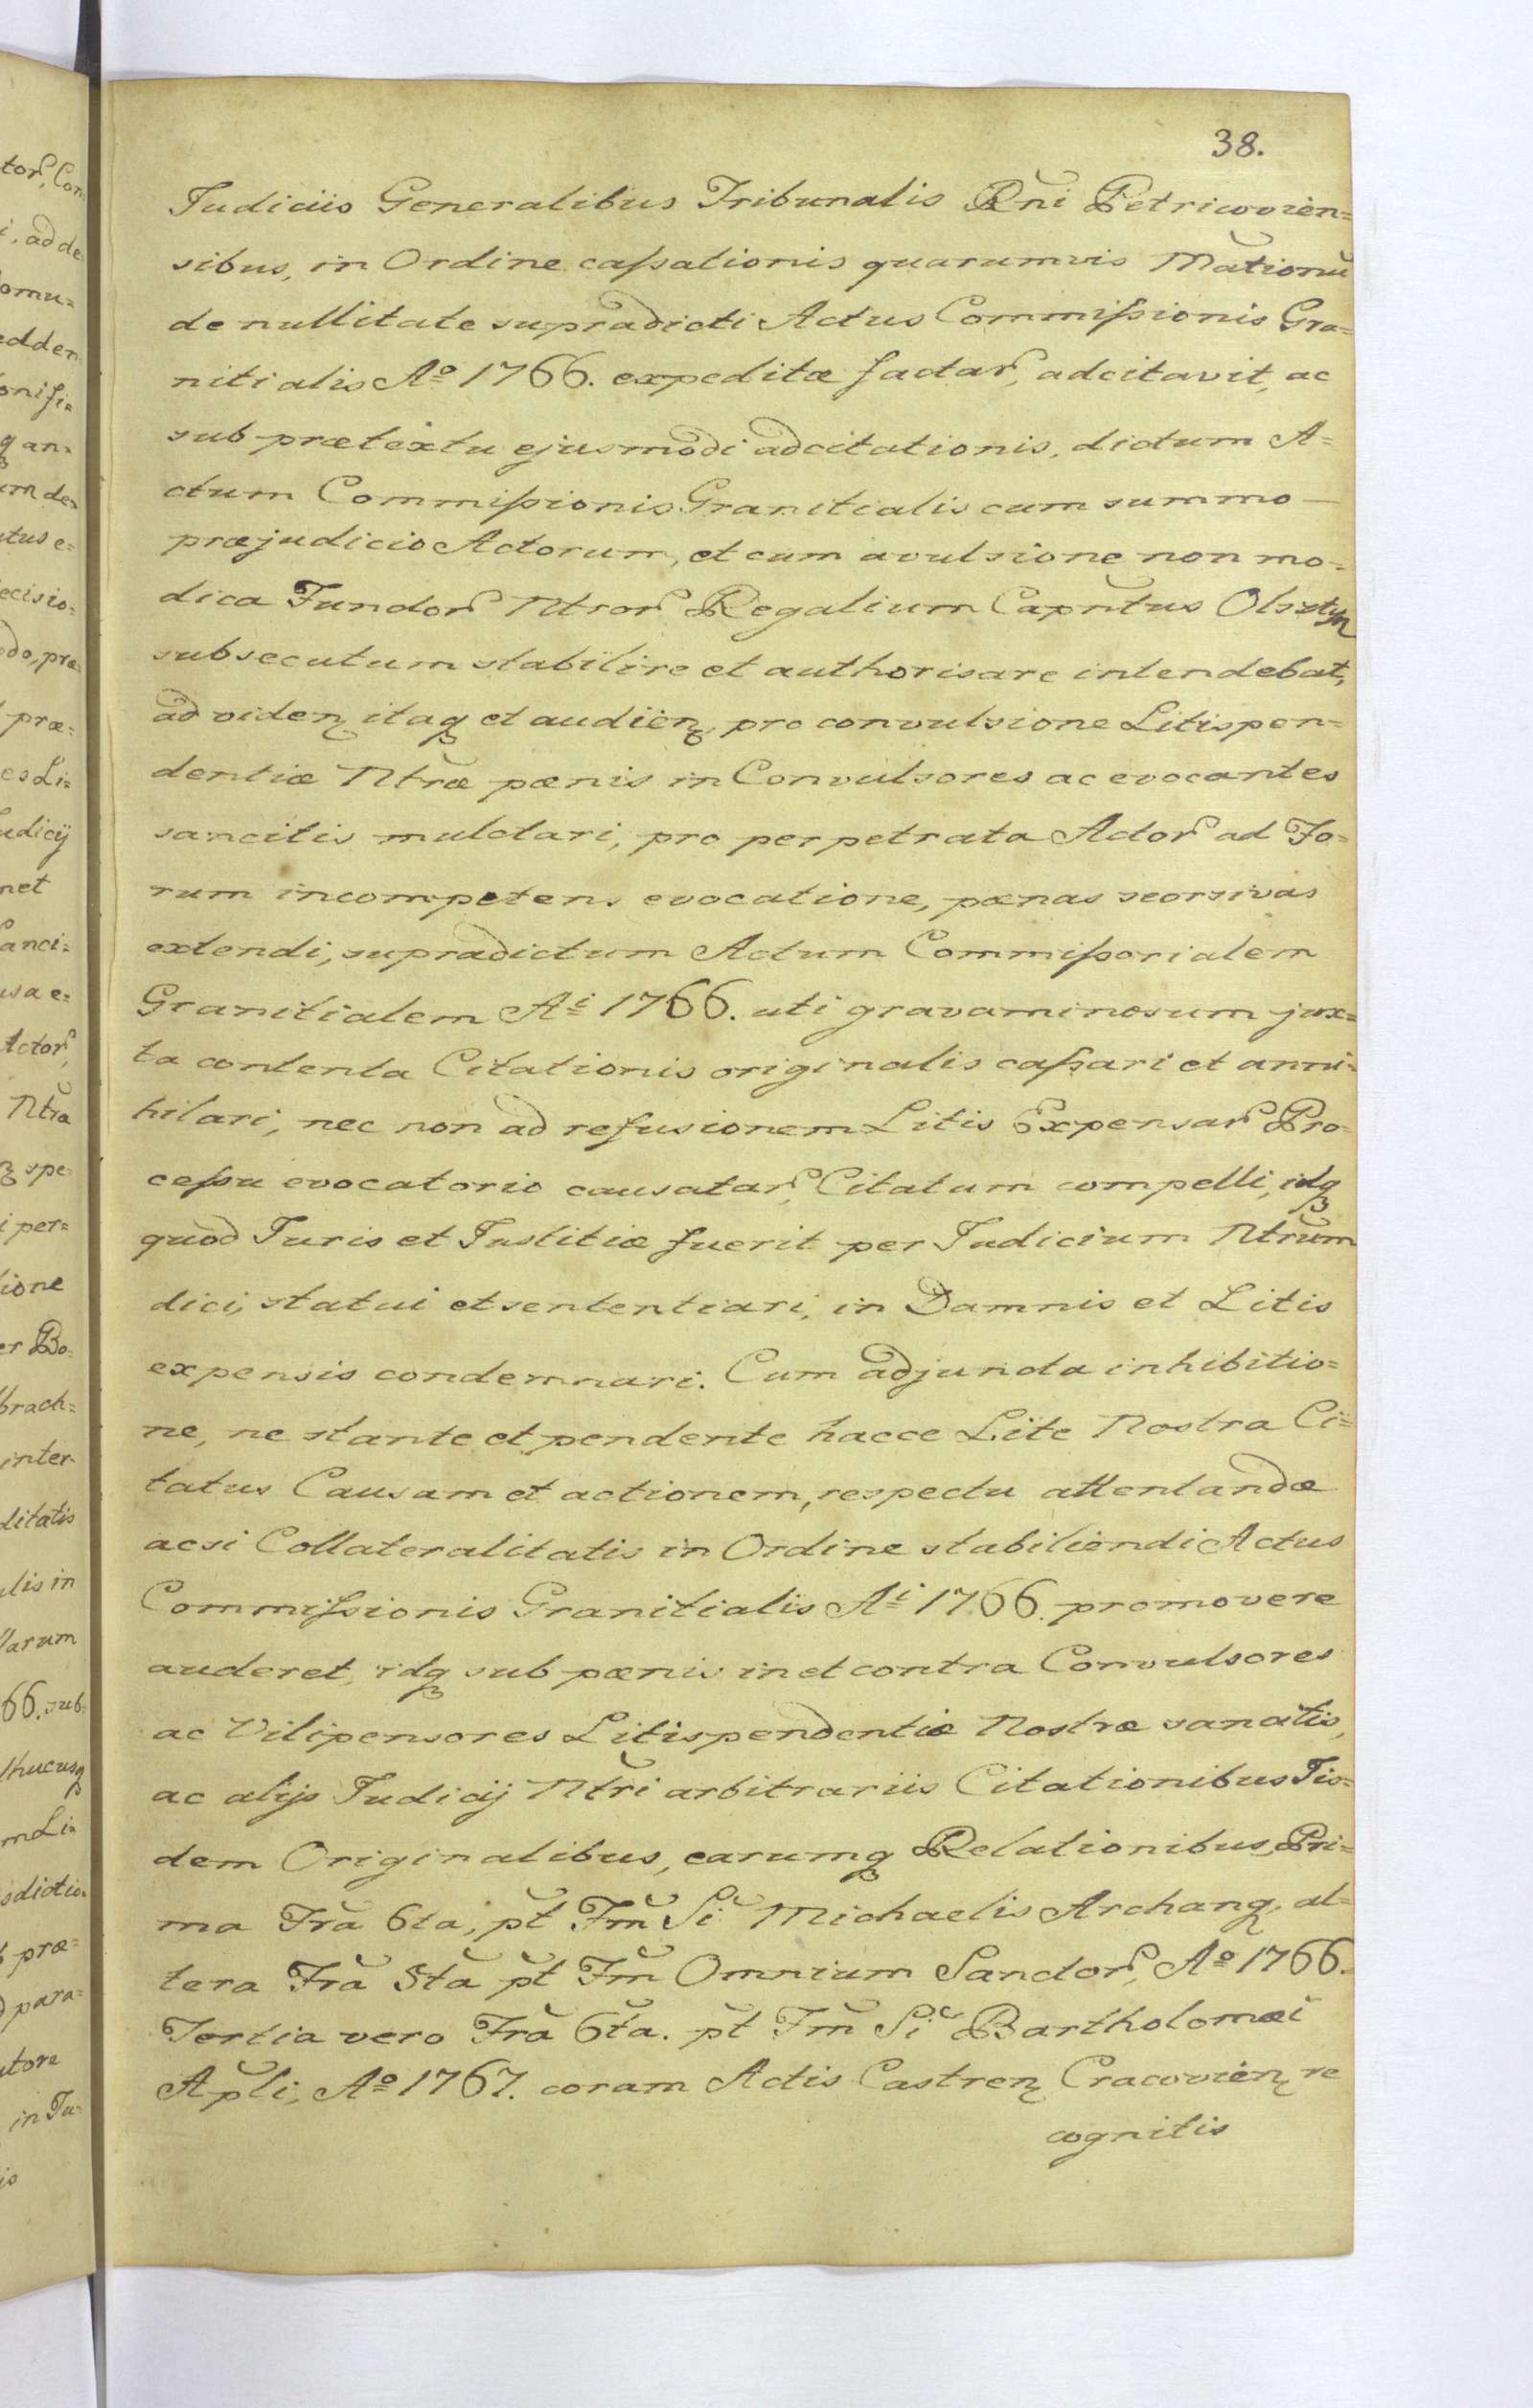 38.
Judiciis Generalibus Tribunalis Rni Petricovien=
sibus, in Ordine caſsationis quarumvis Mãtionũ
de nullitate supradicti Actus Commiſsionis Gra=
nitialis Aº 1766. expeditæ factar, adcitavit, ac
sub prætextu ejusmodi adcitationis, dictum A=
ctum Commiſsionis Granitialis cum summo —
præjudicio Actorum, et cum avulsione non mo=
dica Fundor Ntror Regalium Capntus Olsztyn
subsecutum stabilire et authorisare intendebat,
ad viden itaq et audien, pro convulsione Litispen=
dentiæ Ntræ pænis in Convulsores ac evocantes
sancitis mulctari, pro perpetrata Actor ad Fo=
rum incompetens evocatione, pænas seorsivas
extendi, supradictum Actum Commiſsorialem
Granitialem Ai 1766. uti gravaminosum jux=
ta contenta Citationis originalis caſsari et anni=
hilari, nec non ad refusionem Litis Expensar Pro=
ceſsu evocatorio causatar, Citatum compelli, idq
quod Juris et Justitiæ fuerit per Judicium Ntrum
dici, statui et sententiari, in Damnis et Litis
expensis condemnari. Cum adjuncta inhibitio=
ne, ne stante et pendente hacce Lite Nostra Ci=
tatus Causam et actionem, respectu attentandæ
acsi Collateralitatis in Ordine stabiliendi Actus
Commiſsionis Granitialis Ai 1766. promovere
auderet, idq sub pænis in et contra Convulsores
ac Vilipensores Litispendentiæ Nostræ sancitis,
ac alijs Judicij Ntri arbitrariis Citationibus Iis=
dem Originalibus, earumq Relationibus, Pri=
ma Frã 6ta, pt Fm Si Michaelis Archang, al=
tera Frã 5ta pt Fm Omnium Sanctor, Aº 1766.
Tertia vero Frã 6ta. pt Fm Si Bartholomæi
Apli, Aº 1767. coram Actis Castren Cracovien re
cognitis